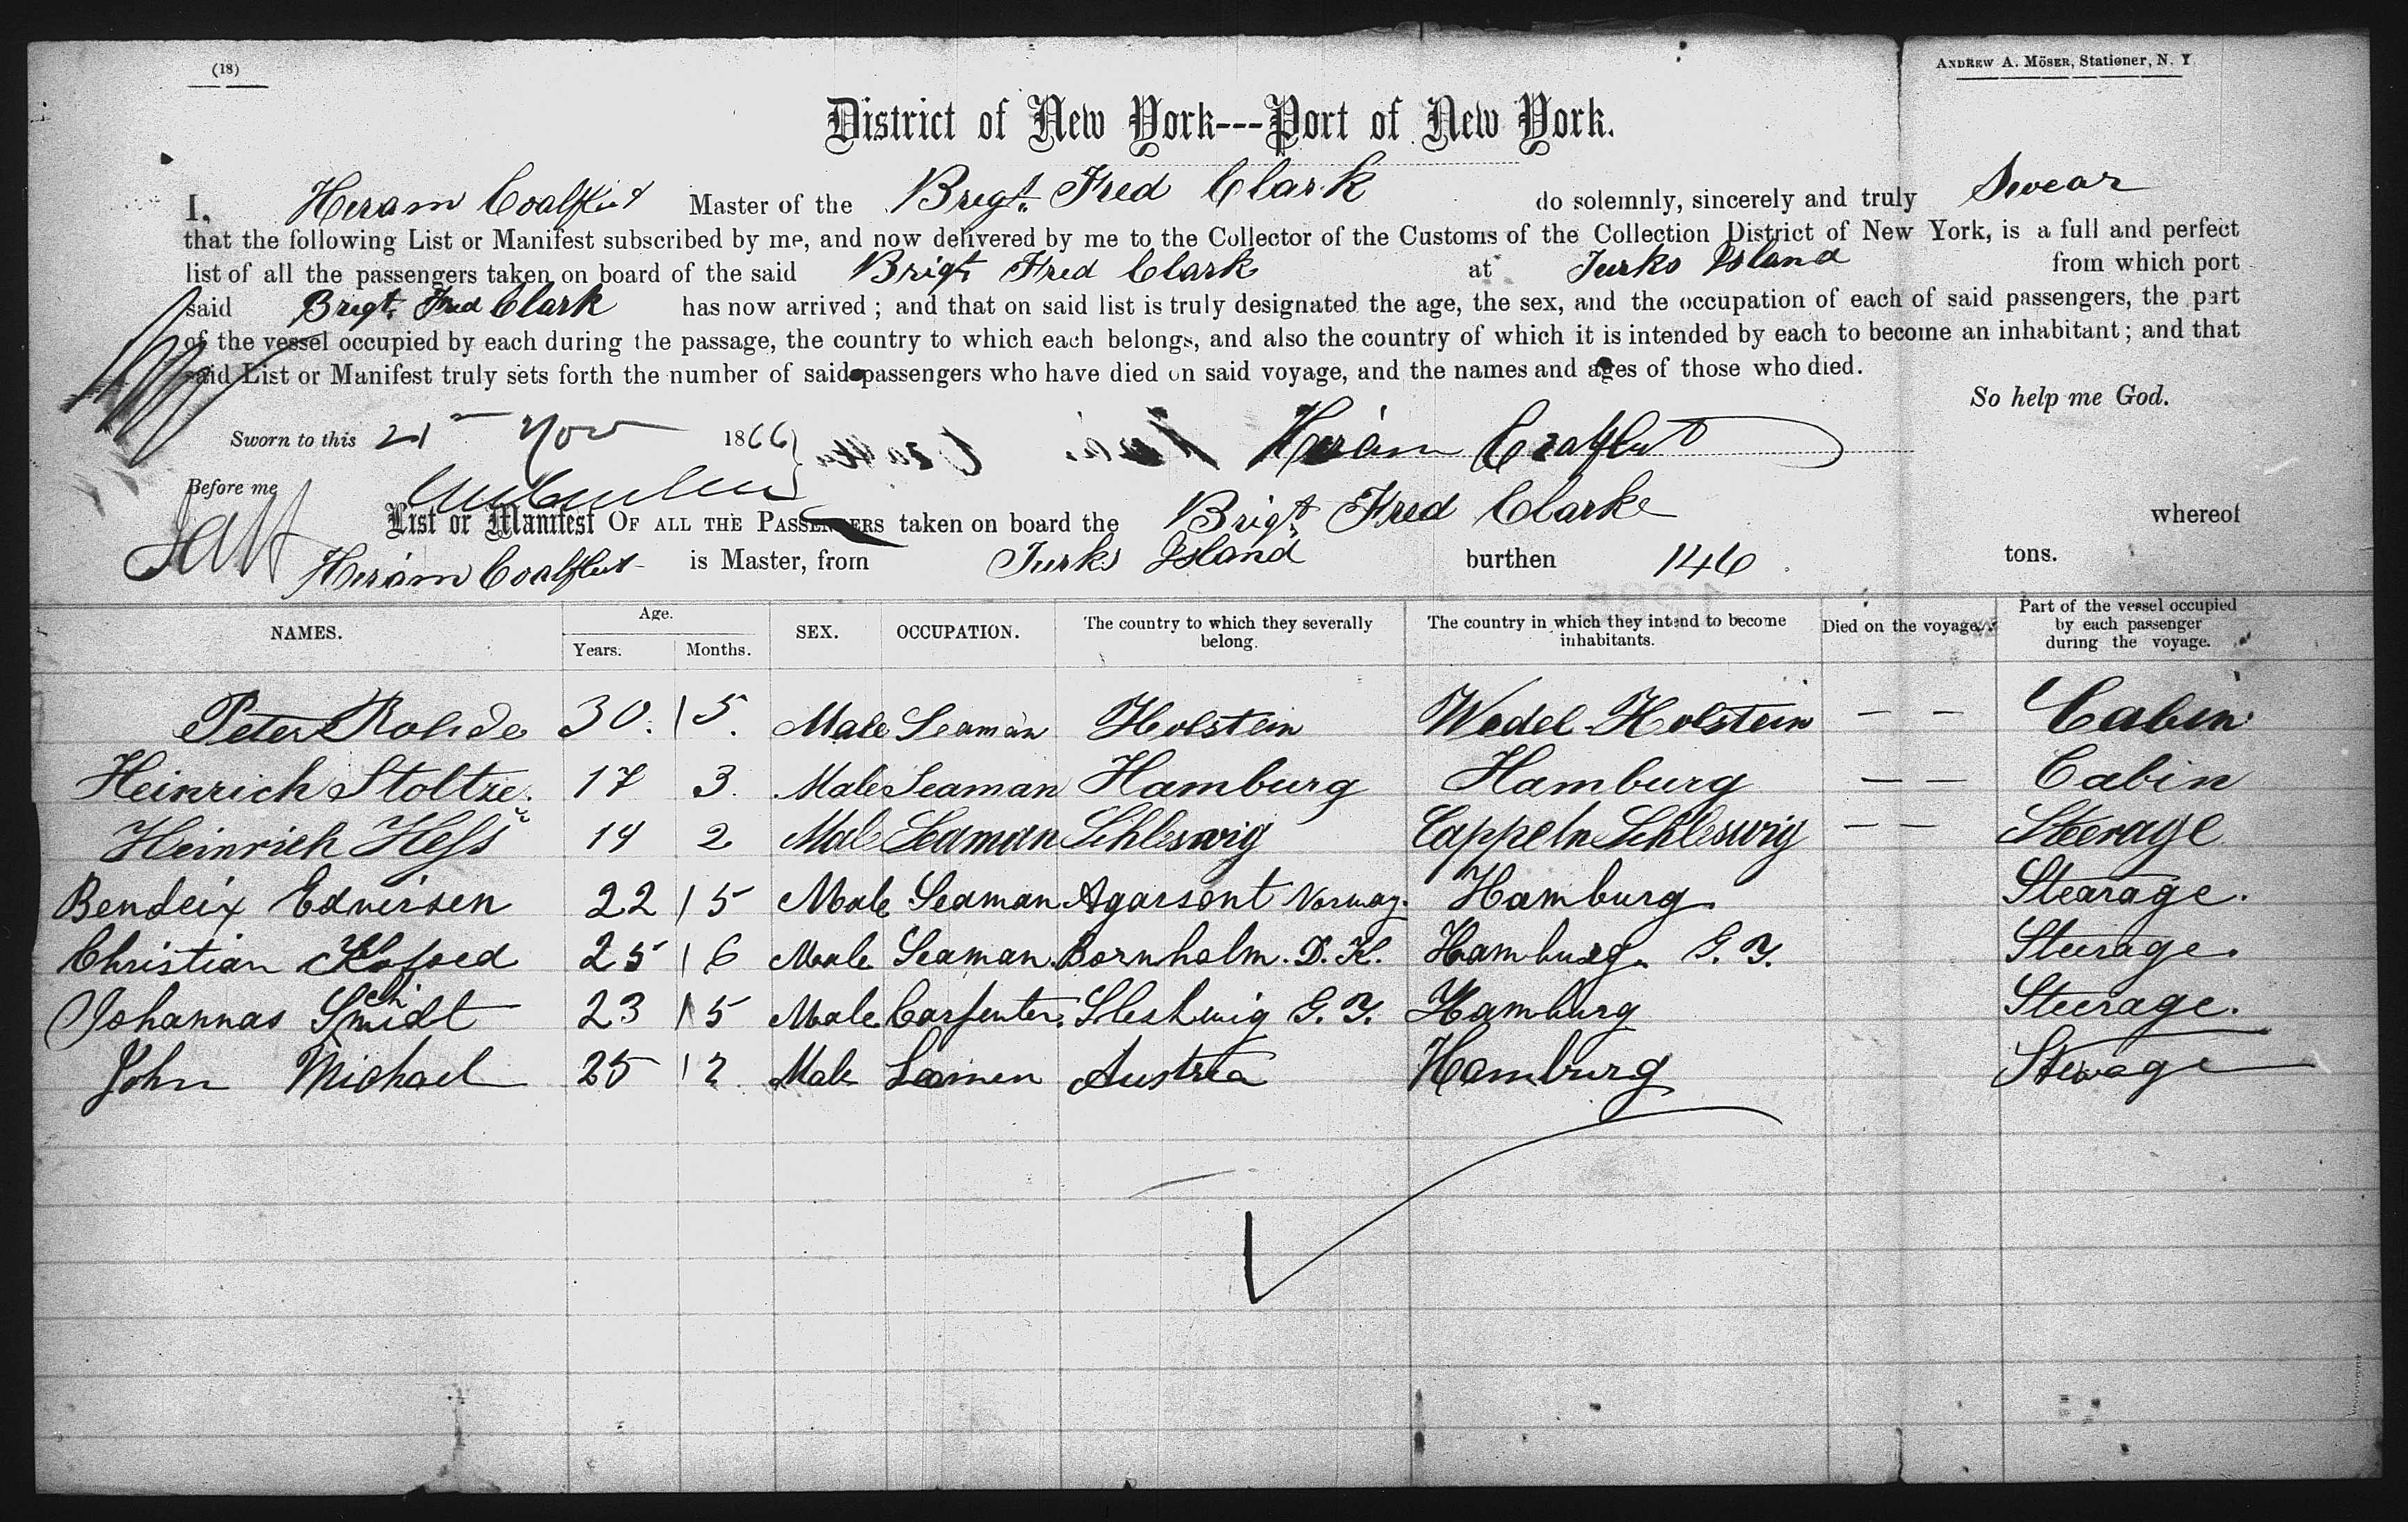 (18)
ANDREW A. MÖSER, Stationer, N. Y
District of New York---Port of New York.
I, Heram Coalfleet Master of the Brigt. Fred Clark do solemnly, sincerely and truly Swear
that the following List or Manifest subscribed by me, and now delivered by me to the Collector of the Customs of the Collection District of New York, is a full and perfect
list of all the passengers taken on board of the said Brigt Fred Clark at Turks Island from which port
said Brigt. Fred Clark has now arrived; and that on said list is truly designated the age, the sex, and the occupation of each of said passengers, the part
of the vessel occupied by each during the passage, the country to which each belongs, and also the country of which it is intended by each to become an inhabitant; and that
said List or Manifest truly sets forth the number of said passengers who have died on said voyage, and the names and ages of those who died.
So help me God.
Sworn to this 21 Nov 1866 Heram Coalfleet
Before me
List or Manifest OF ALL THE PASSENGERS taken on board the Brigt. Fred Clarke whereof
Heram Coalfleet is Master, from Turks Island burthen 146 tons.
NAMES. Age. Years. Months. SEX. OCCUPATION. The country to which they severally belong. The country in which they intend to become inhabitants. Died on the voyage. Part of the vessel occupied by each passenger during the voyage.
Peter Rohde 30. 5. Male Seaman Holstein Wedel-Holstein — — Cabin
Heinrich Stoltze. 17 3. Male Seaman Hamburg Hamburg — — Cabin
Heinrich Hess 19 2 Male Seaman Schleswig Cappeln Schleswig — — Steerage
Bendeix Edwirsen 22 5 Male Seaman. Agarsont Norway. Hamburg. Stearage.
Christian Kofoed 25 6 Male Seaman. Bornholm. D. K. Hamburg. G. Y. Steerage.
Johannas Schmidt 23 5 Male Carpenter. Sleshwig G. Y. Hamburg Steerage.
John Michael 25 2 Male Seamen Austria Hamburg Sterage